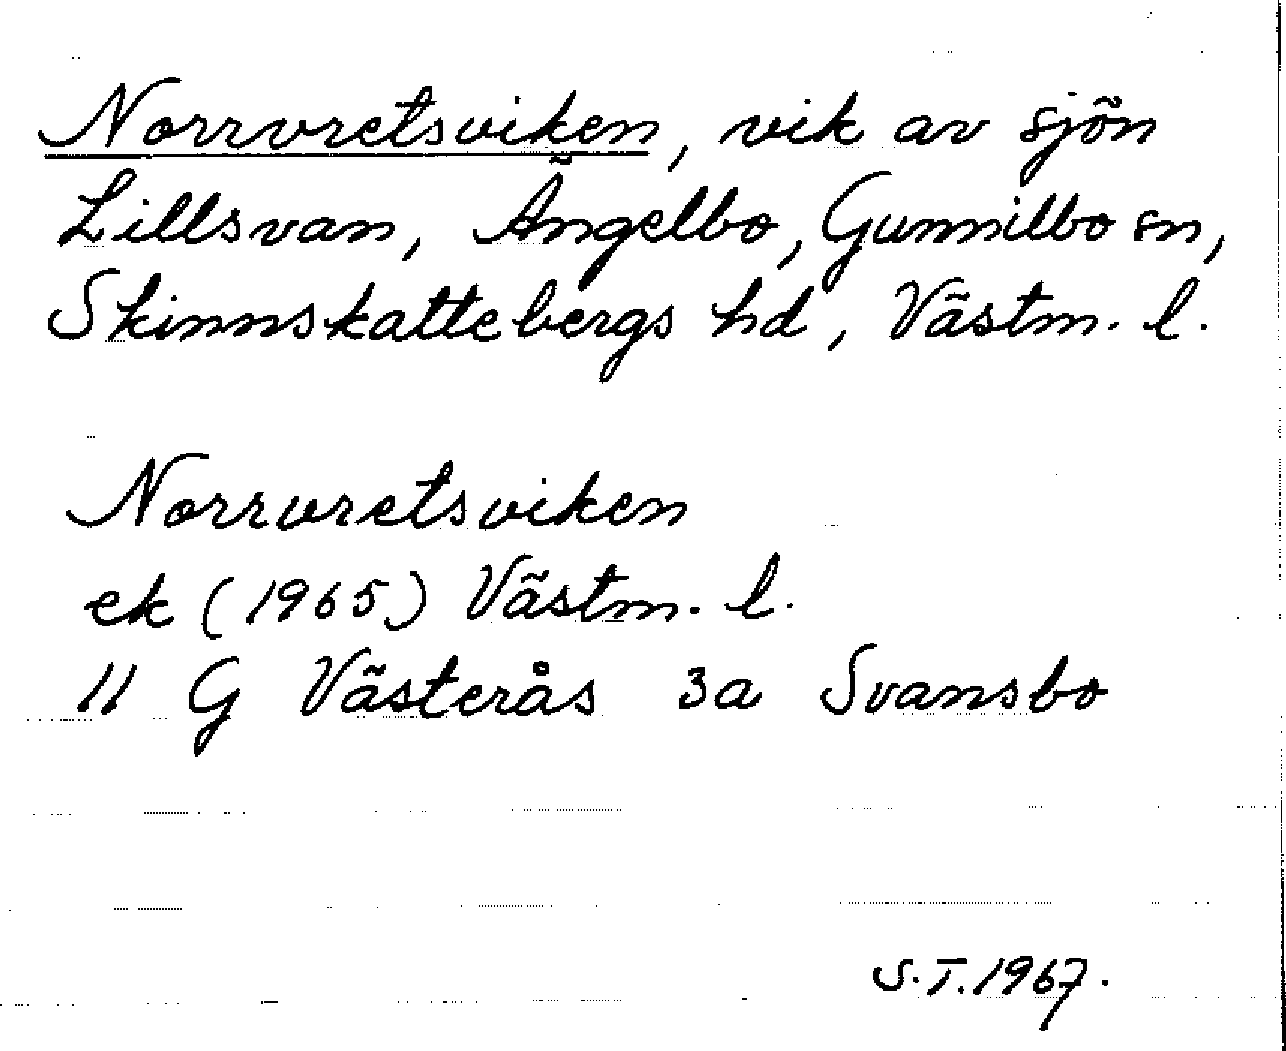 Norrvretsviken, vik av sjön
Lillsvan, Ängelbo, Gunnilbo sn,
Skinnskattebergs hd, Västm. l.
Norrvretsviken
ek (1965) Västm. l.
11 G Västerås 3a Svansbo
S.T. 1967.